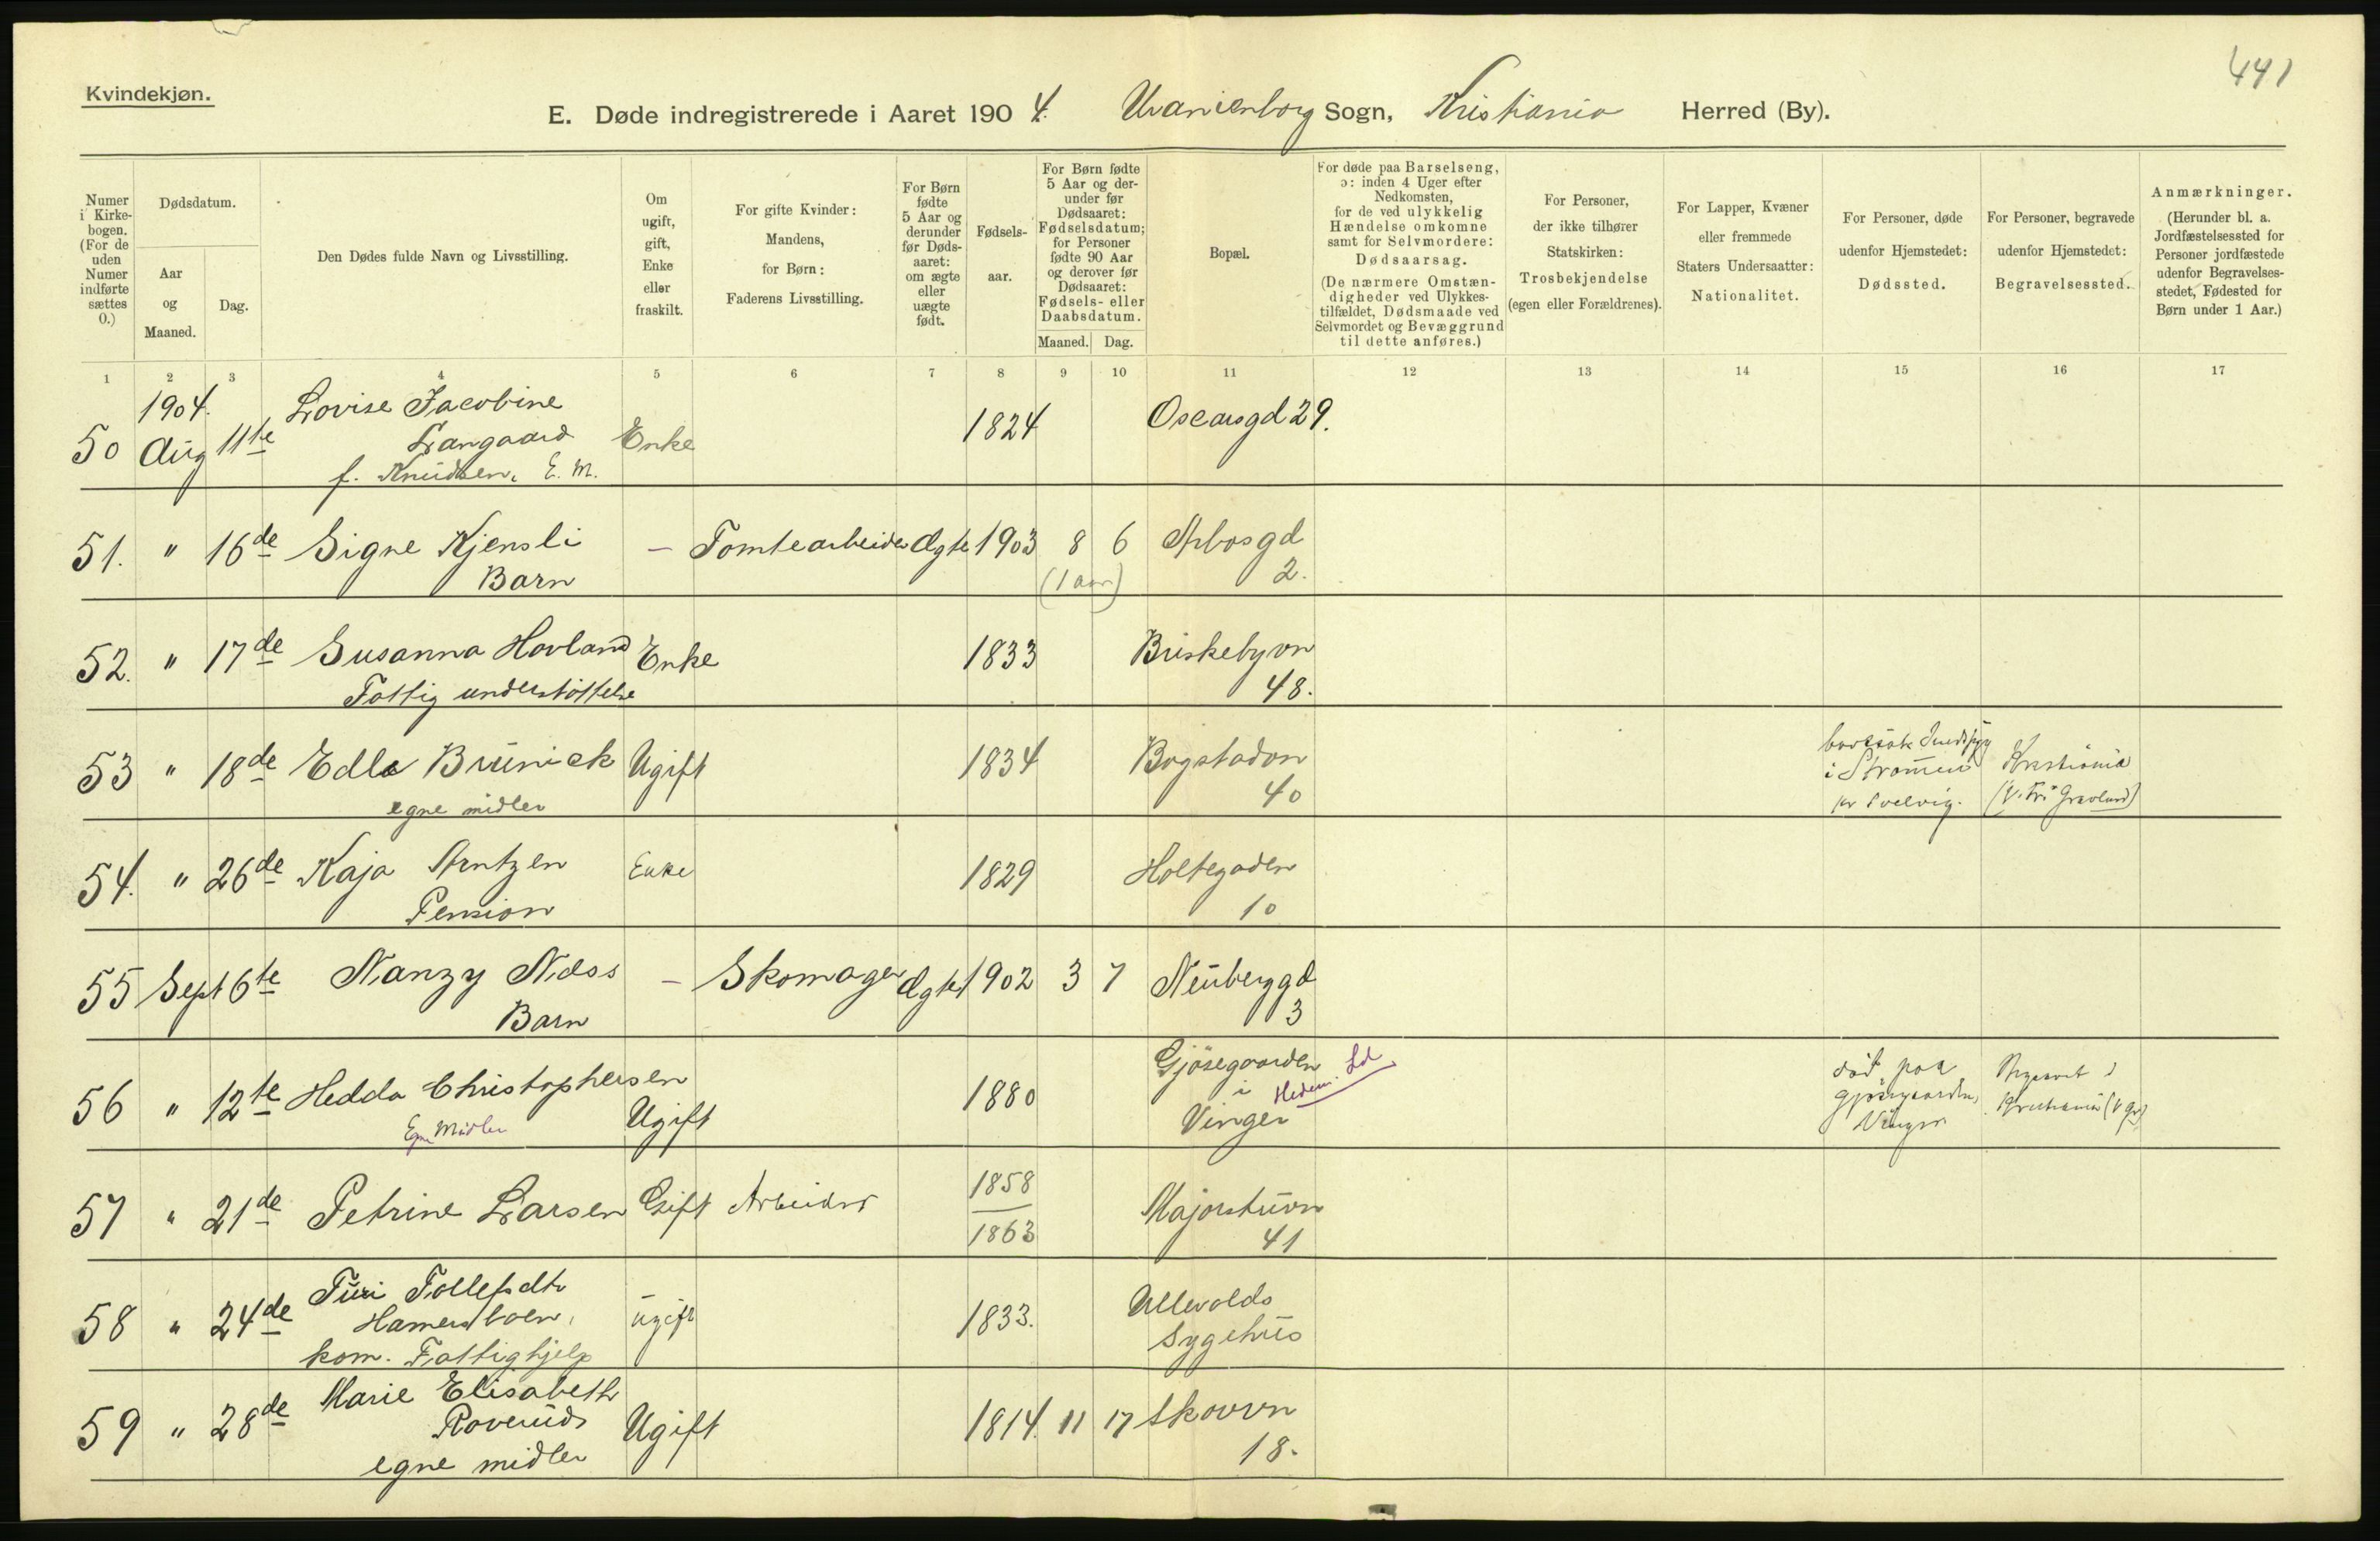 441
Kvindekjøn.
E. Døde indregistrerede i Aaret 1904. Uranienborg Sogn, Kristiania Herred (By).
Numer i Kirkebogen. (For de uden Numer indførte sættes 0.)
Dødsdatum.
Aar og Maaned.
Dag.
Den Dødes fulde Navn og Livsstilling.
Om ugift, gift, Enke eller fraskilt.
For gifte Kvinder: Mandens, for Børn: Faderens Livsstilling.
For Børn fødte 5 Aar og derunder før Dødsaaret: om ægte eller uægte født.
Fødselsaar.
For Børn fødte 5 Aar og derunder før Dødsaaret: Fødselsdatum; for Personer fødte 90 Aar og derover før Dødsaaret: Fødsels- eller Daabsdatum.
Maaned. Dag.
Bopæl.
For døde paa Barselseng, ɔ: inden 4 Uger efter Nedkomsten, for de ved ulykkelig Hændelse omkomne samt for Selvmordere: Dødsaarsag.
(De nærmere Omstændigheder ved Ulykkestilfældet, Dødsmaade ved Selvmordet og Bevæggrund til dette anføres.)
For Personer, der ikke tilhører Statskirken: Trosbekjendelse (egen eller Forældrenes).
For Lapper, Kvæner eller fremmede Staters Undersaatter: Nationalitet.
For Personer, døde udenfor Hjemstedet: Dødssted.
For Personer, begravede udenfor Hjemstedet: Begravelsessted.
Anmærkninger. (Herunder bl. a. Jordfæstelsessted for Personer jordfæstede udenfor Begravelsesstedet, Fødested for Børn under 1 Aar.)
1 2 3 4 5 6 7 8 9 10 11 12 13 14 15 16 17
1904.
50 Aug 11te Lovise Jacobine Langaard f. Knudsen, E. M. Enke 1824 Oscarsgd 29.
51. " 16de Signe Kjensli Barn - Tomtearbeider Ægte 1903 8 6 (1 aar) Arbosgd 2.
52. " 17de Susanna Hovland Fattig understøttelse Enke 1833 Briskebyvn 48.
53 " 18de Edle Brünick egne midler Ugift 1834 Bogstadvn 40 i Strømmen pr Svelvig. Kristiania (V. Frs Gravlund)
54. " 26de Kaja Arntzen Pension Enke 1829 Holtegaden 10
55 Sept 6te Nanzy Næss Barn - Skomager Ægte 1902 3 7 Neuberggd 3
56 " 12te Hedda Christophersen Egne Midler Ugift 1880 Gjøsegaarden i Vinger Hedem. død paa Gjøsegaarden, Vinger Kristiania (V Gr)
57 " 21de Petrine Larsen Gift Arbeider 1858 1863 Majorstuvn 41
58 " 24de Turi Tollefsdtr Hamersboen, kom. Fattighjelp ugift 1833. Ullevolds Sygehus
59 " 28de Marie Elisabeth Roverud egne midler Ugift 1814. 11 17 Skovvn 18.